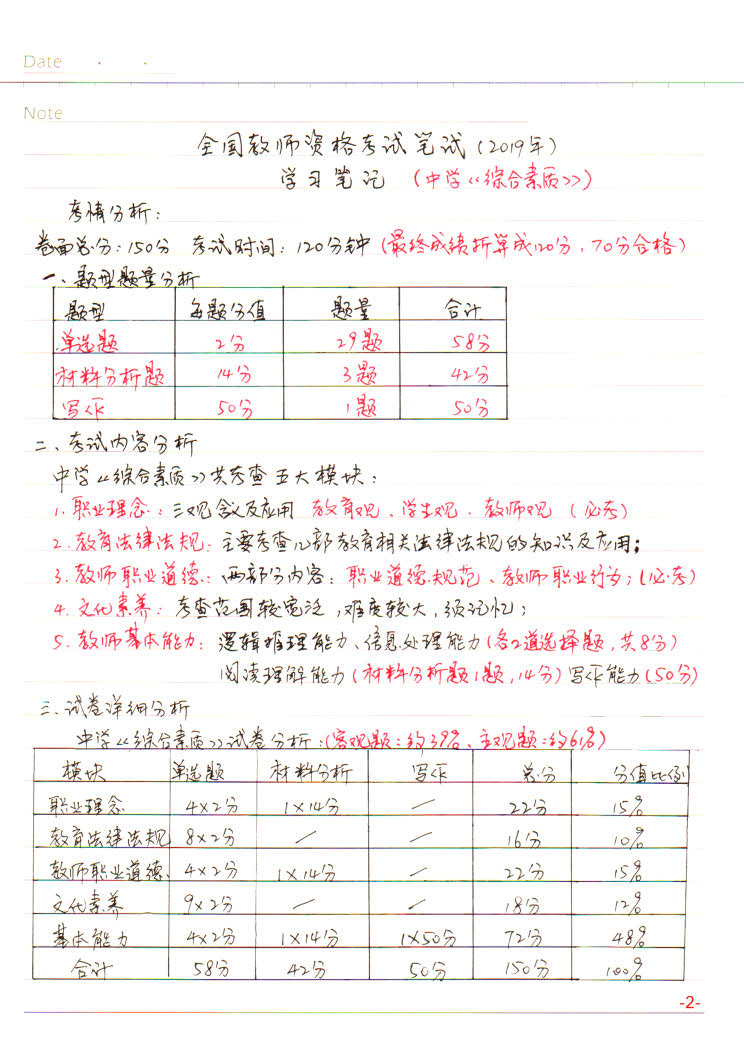 Date · ·
Note
全国教师资格考试笔试(2019年)
学习笔记 (中学《综合素质》)
考情分析:
卷面总分:150分 考试时间:120分钟(最终成绩折算成120分,70分合格)
一、题型题量分析
题型 每题分值 题量 合计
单选题 2分 29题 58分
材料分析题 14分 3题 42分
写作 50分 1题 50分
二、考试内容分析
中学《综合素质》共考查五大模块:
1.职业理念:三观含义及应用 教育观、学生观、教师观 (必考)
2.教育法律法规:主要考查几部教育相关法律法规的知识及应用;
3.教师职业道德:两部分内容:职业道德规范、教师职业行为;(必考)
4.文化素养:考查范围较宽泛,难度较大,须记忆;
5.教师基本能力:逻辑推理能力、信息处理能力(各2道选择题,共8分)
阅读理解能力(材料分析题1题,14分)写作能力(50分)
三、试卷详细分析
中学《综合素质》试卷分析:(客观题:约39%、主观题:约61%)
模块 单选题 材料分析 写作 总分 分值比例
职业理念 4×2分 1×14分 / 22分 15%
教育法律法规 8×2分 / / 16分 10%
教师职业道德 4×2分 1×14分 / 22分 15%
文化素养 9×2分 / / 18分 12%
基本能力 4×2分 1×14分 1×50分 72分 48%
合计 58分 42分 50分 150分 100%
-2-